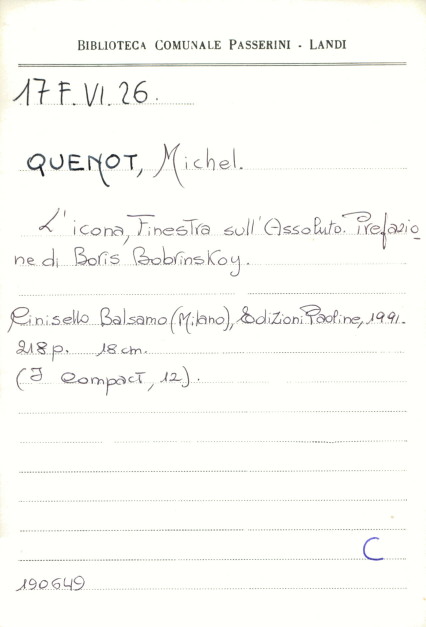 BIBLIOTECA COMUNALE PASSERINI - LANDI
17 F. VI. 26.
QUENOT, Michel.
L'icona, Finestra sull'Assoluto. Prefazio
ne di Boris Bobrinskoy.
Cinisello Balsamo (Milano), Edizioni Paoline, 1991.
218 p. 18 cm.
(I Compact, 12).
C
190649